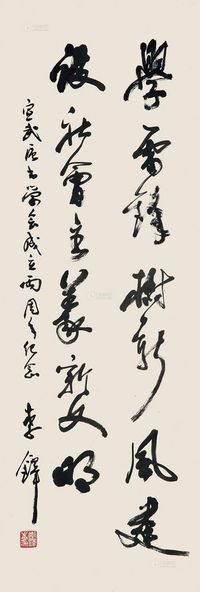 學雷鋒樹新風建
設社會主義新文明
宣武区书学会成立两周年纪念 李鐸